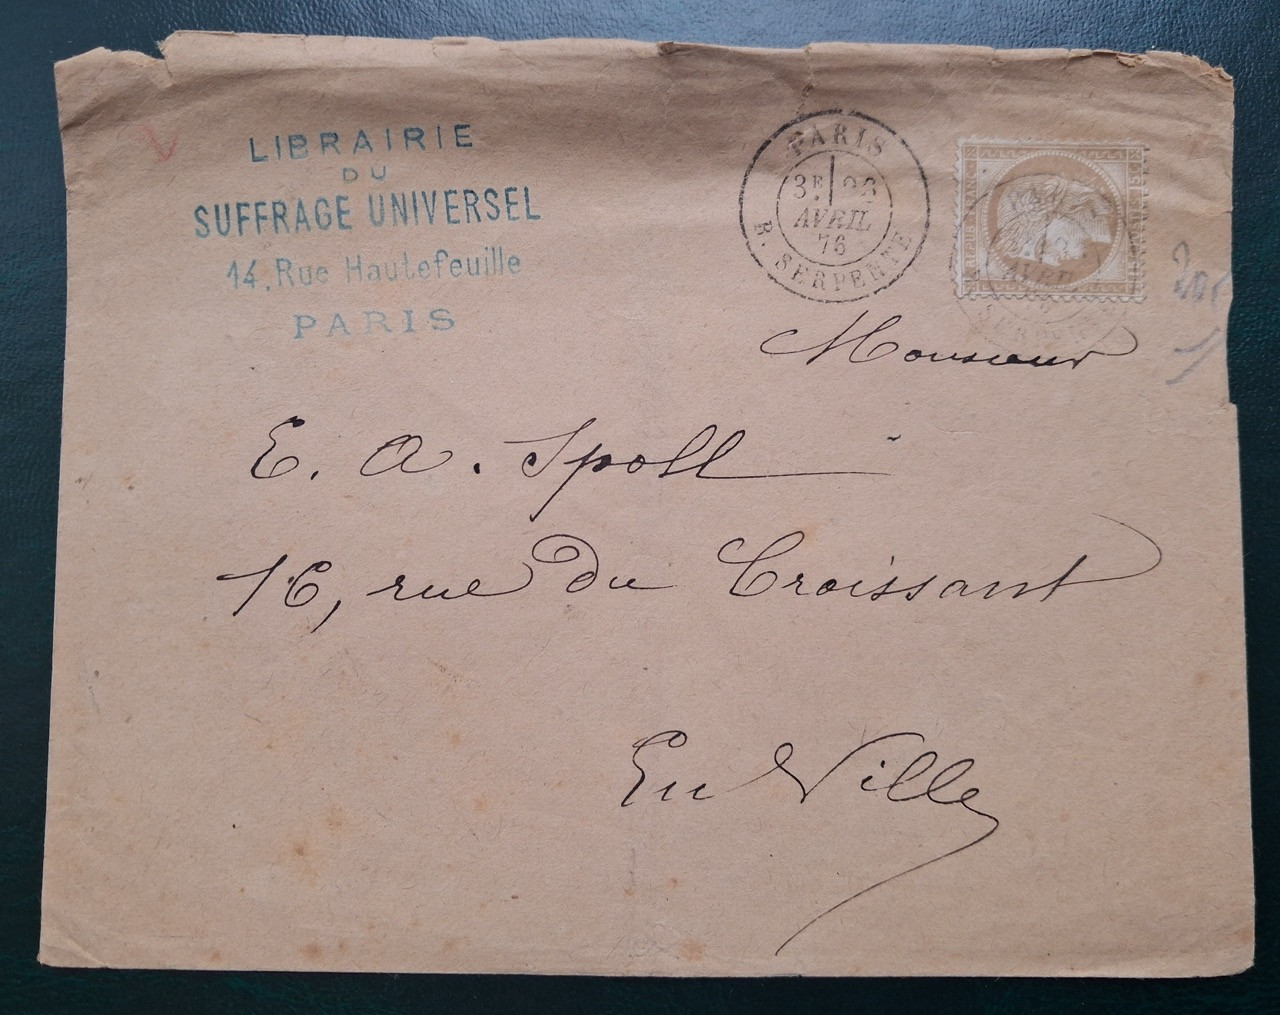 LIBRAIRIE
DU
SUFFRAGE UNIVERSEL
14, Rue Hautefeuille
PARIS
PARIS
3E
AVRIL
76
R. SERPENTE
AVRIL
Monsieur
E. A. Spoll
16, rue du Croissant
En Ville